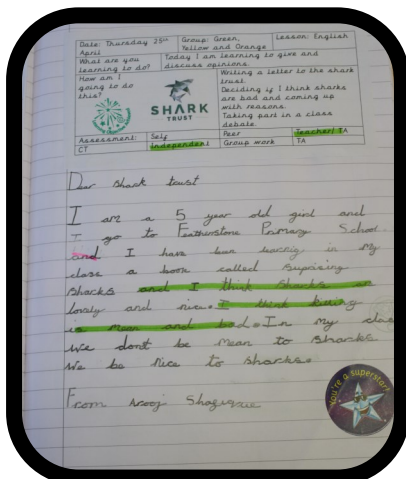 Date: Thursday 25th April
Group: Green, Yellow and Orange
Lesson: English
What are you learning to do?
Today I am learning to give and discuss opinions.
How am I going to do this?
SHARK
TRUST
Writing a letter to the shark trust.
Deciding if I think sharks are bad and coming up with reasons.
Taking part in a class debate.
Assessment:
Self
Peer
Teacher/ TA
CT
Independent
Group work
TA
Dear shark trust
I am a 5 year old girl and
I go to Featherstone Primary School
and I have been learnig in my
class a book called suprising
sharks and I think sharks are
lovely and nice. I think
is mean and bad. In my class
we dont be mean to sharks
We be nice to sharks.
From Arooj
You're a superstar!